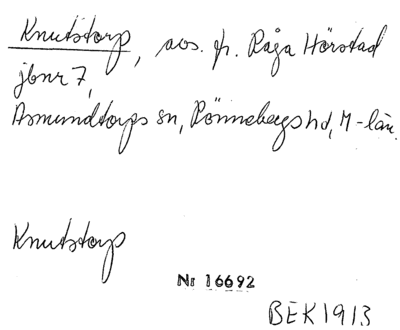 Knutstorp, avs. fr. Råga Hörstad
jbnr 7,
Asmundtorps sn, Rönnebergs hd, M-län.
Knutstorp
Nr 16692
BEK1913